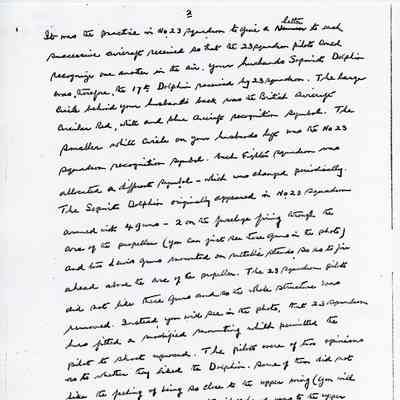 2
letter
It was the practice in No 23 Squadron to give a Number to each
successive aircraft received so that the 23 Squadron pilots could
recognise one another in the air. Your husbands Sopwith Dolphin
was, therefore, the 17th Dolphin received by 23 Squadron. The larger
circle behind your husbands back was the British Aircraft
circular Red, White and Blue Aircraft recognition symbol. The
smaller white circle on your husbands left was the No 23
Squadron recognition symbol. Each Fighter Squadron was
allocated a different symbol - which was changed periodically.
The Sopwith Dolphin originally appeared in No 23 Squadron
armed with 4 guns - 2 on the fuselage firing through the
arc of the propellor (you can just see these guns in the photo)
and two Lewis guns mounted on metallic stands so as to fire
ahead above the arc of the propellor. The 23 Squadron pilots
did not like these guns and so the whole structure was
removed. Instead you will see in the photo, that 23 Squadron
has fitted a modified mounting which permitted the
pilot to shoot upward. The pilots were of two opinions
as to whether they liked the Dolphin. Some of them did not
like the feeling of being so close to the upper wing (you will
was to the upper